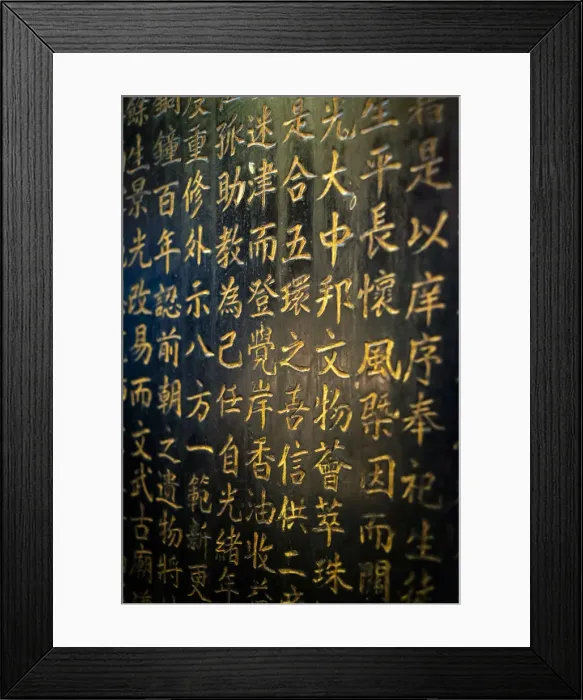 是以庠序奉祀生徒
生平長懷風槩因而關
光大中邦文物薈萃珠
是合五環之善信供二
迷津而登覺岸香油收益
孤助教為己任自光緒年
重修外示八方一範新更
銅鐘百年認前朝之遺物將
餘生景光改易而文武古廟